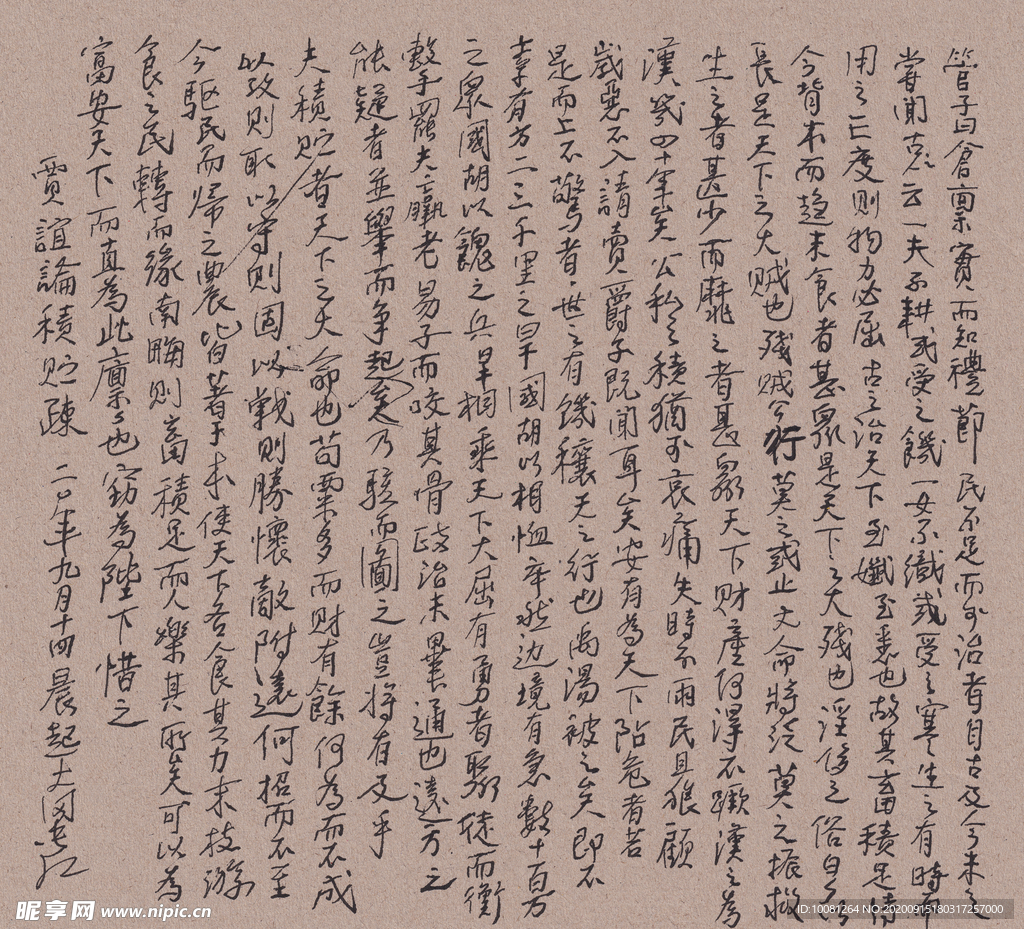 管子曰倉稟實而知禮節民不足而可治者自古及今未之
嘗聞古之云一夫不耕或受之饑一女不織或受之寒生之有時而
用之亡度則物力必屈古之治天下至孅至悉也故其畜積足恃
今背本而趨末食者甚眾是天下之大殘也淫侈之俗日日以
長是天下之大賊也殘賊公行莫之或止大命將泛莫之振救
生之者甚少而靡之者甚眾天下財產何得不蹶漢之為
漢幾四十年矣公私之積猶可哀痛失時不雨民且狼顧
歲惡不入請賣爵子既聞耳矣安有為天下阽危者若
是而上不驚者世之有饑穰天之行也禹湯被之矣即不
幸有方二三千里之旱國胡以相恤卒然边境有急數十百万
之眾國胡以餽之兵旱相乘天下大屈有勇者聚徒而衡
擊乎罷夫羸老易子而咬其骨政治未畢通也遠方之
能疑者並舉而争起矣乃駭而圖之豈將有及乎
夫積贮者天下之大命也苟粟多而財有餘何為而不成
以攻則取以守則固以戰則勝懷敵附遠何招而不至
今驱民而歸之農皆著于本使天下各食其力末技游
食之民轉而緣南畮則畜積足而人樂其所矣可以為
富安天下而直為此廩廩也窃為陛下惜之
賈誼論積贮疎 二〇年九月十四晨起
昵享网 www.nipic.cn
ID:10081264 NO:20200915180317257000